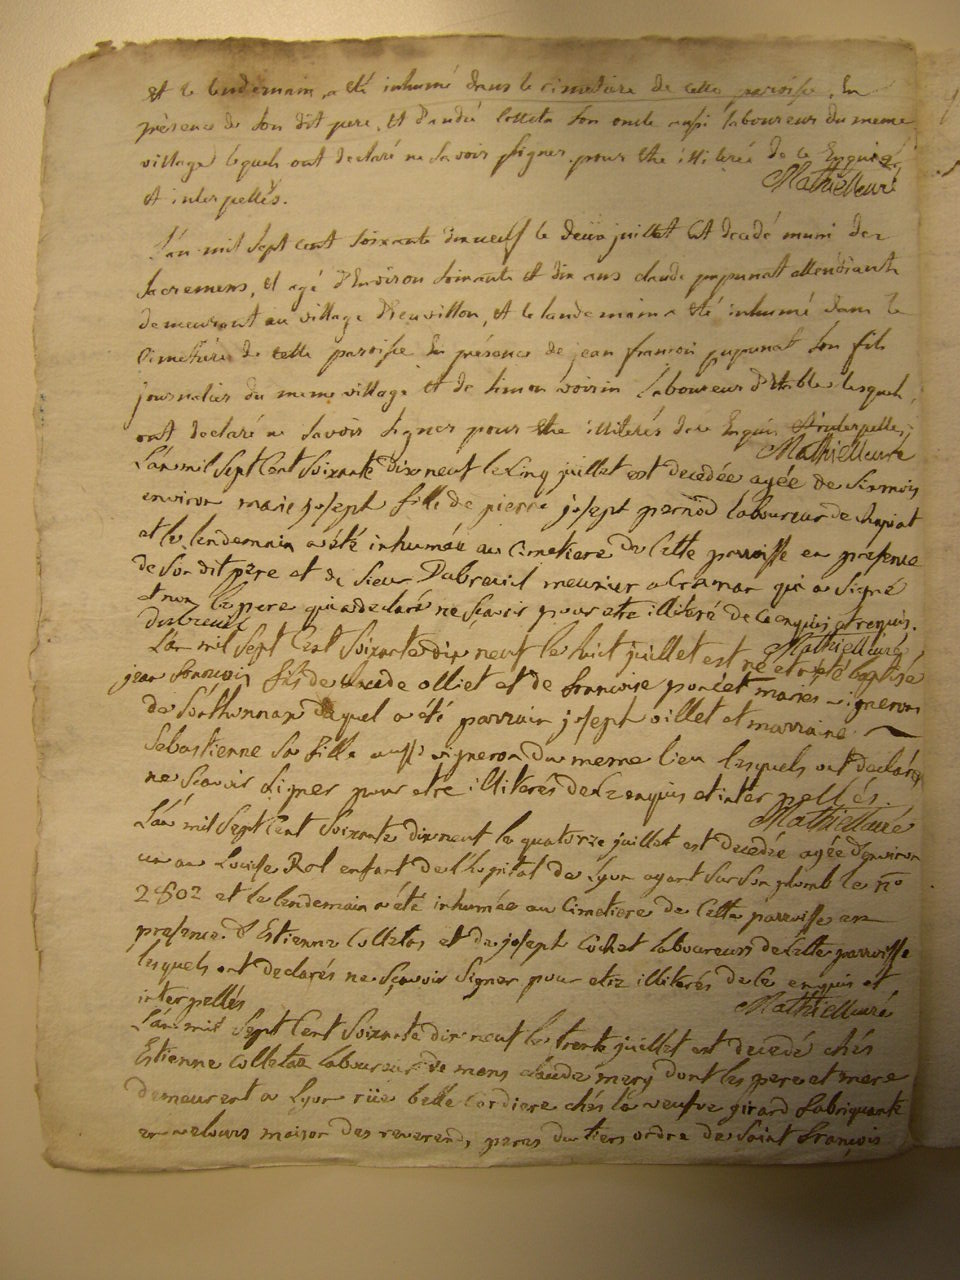 et le lendemain a été inhumé dans le cimetiere de cette paroisse, En
présence de son dit pere, et d'andré colleta son oncle aussi laboureur du meme
village lequels ont declaré ne savoir signer pour etre illiterés de ce Enquis
Mathieu curé
et interpellés.
L'an mil sept cent soixante dix neuf le deux juillet est decedé muni des
sacremens, et agé d'Environ soixante et dix ans claude pupunat
demeurant au village et le landemain a été inhumé dans le
cimetiere de cette paroisse En présence de jean françois pupunat son fils
journalier du meme village et de simon voisin laboureur lesquels
ont declaré ne savoir signer pour etre illiterés de ce Enquis et interpellés,
Mathieu curé
L'an mil sept cent soixante dix neuf le cinq juillet est decedée agée de six mois
environ marie josept fille de pierre josept pernod laboureur de chapiat
et le lendemain a été inhumée au cimetiere de cette parroisse en presence
de son dit pere et de sieur Dubreuil meunier a cramar qui a signé
et non le pere qui a declaré ne scavoir pour etre illiteré de ce enquis et requis.
dubreuil
Mathieu curé
L'an mil sept cent soixante dix neuf le huit juillet est né et a été baptisé
jean françois fils de claude olliet et de françoise poncet mariés vignerons
de Sorthonnax duquel a été parrain josept oillet et marraine
Sebastienne sa fille aussi vigneron du meme lieu lesquels ont declarés
ne scavoir signer pour etre illiterés de ce enquis et interpellés.
Mathieu curé
L'an mil sept cent soixante dix neuf le quatorze juillet est decedée agée d'environ
un an Louise Rol enfant de l'hopital de Lyon ayant sur son plomb le n°
2802 et le lendemain a été inhumée au cimetiere de cette parroisse en
presence d'Estienne Colletas et de josept Cochet laboureurs de cette parroisse
lesquels ont declarés ne sçavoir signer pour etre illiterés de ce enquis et
interpellés
Mathieu curé
L'an mil sept cent soixante dix neuf le trente juillet est decedé chés
Estienne colletaz laboureur de mons claude mery dont les pere et mere
demeurent a Lyon rüe belle cordiere chés la veufve girard fabriquante
en velours maison des reverends peres du tiers ordre de Saint françois